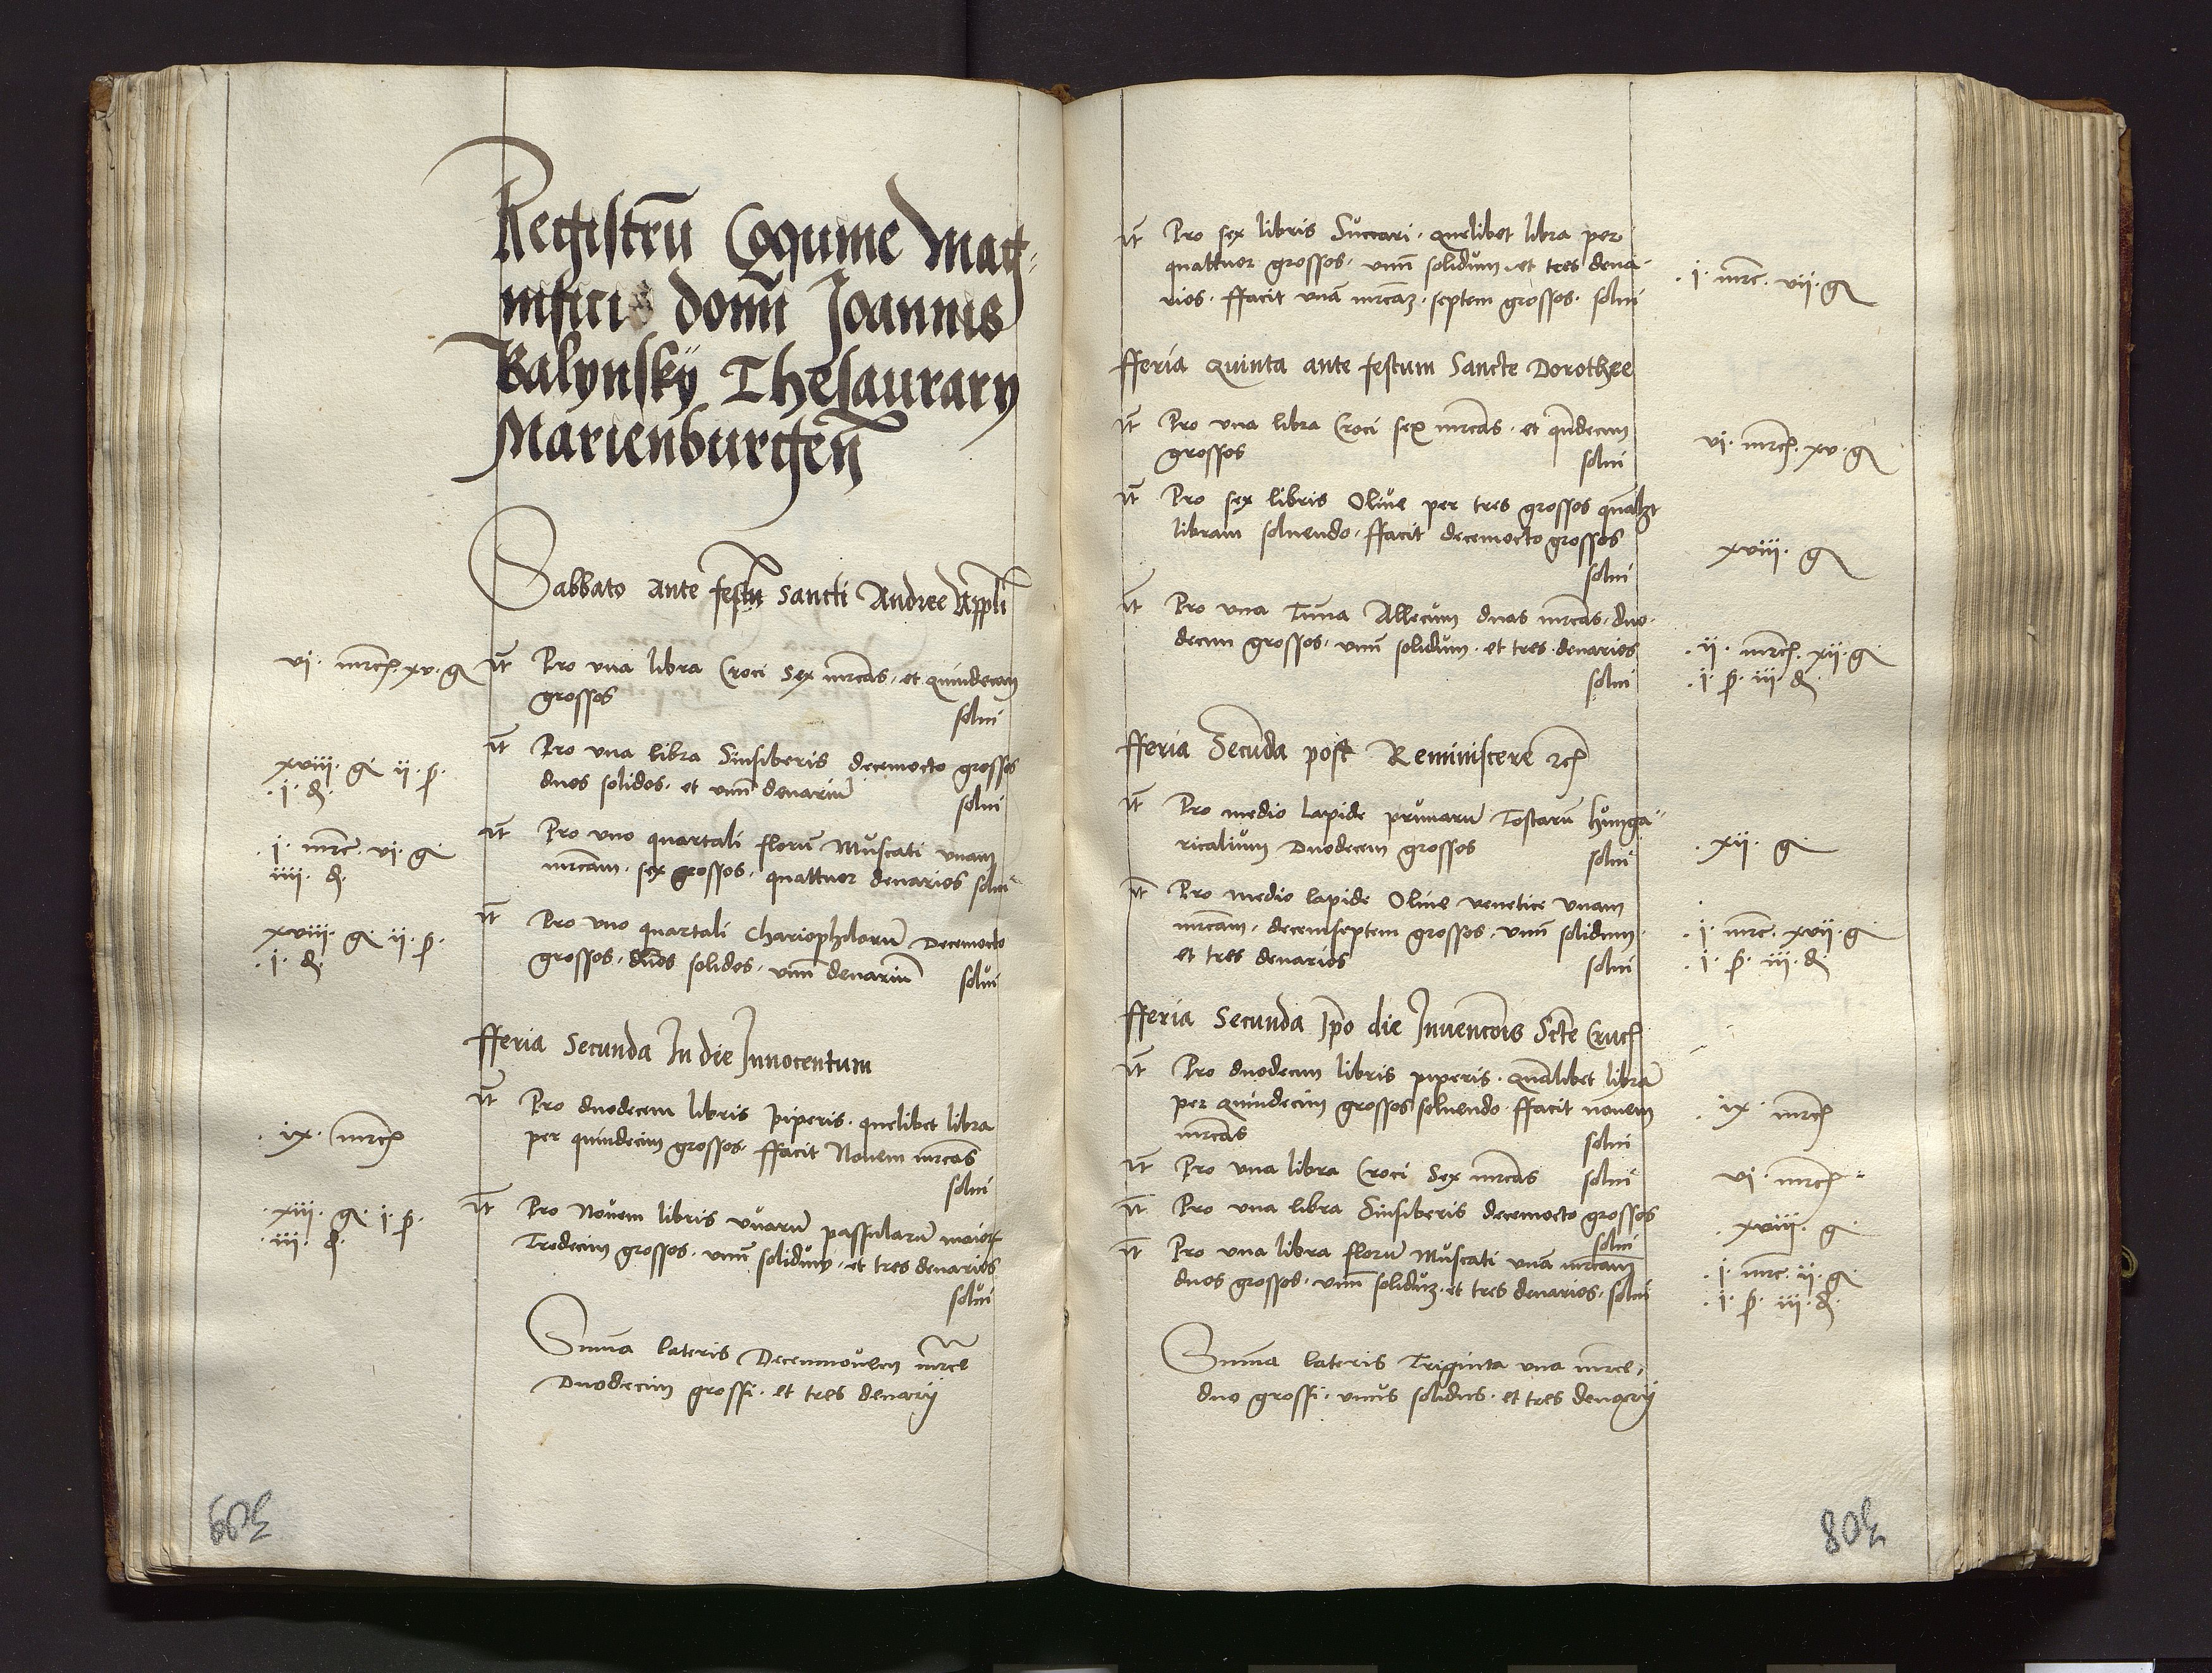 Registrū Coquine Mag-
nifici domī Joannis
Balynskÿ Thesaurary
Marienburgeñ
Sabbato ante festū sancti Andree Appli
vi. mrcs. xv. g
It Pro vna libra Croci Sex mrcas. et quindecim
grossos
solui
xviii. g ii. ß.
.i. d.
It Pro vna libra Sinsiberis decemocto grossos
duos solidos. et vnū denariū
solui
.i. mrc. vi. g.
iiii. d.
It Pro vno quartali florū Muscati vnam
mrcam. sex grossos. quattuor denarios solui
xviii. g ii. ß.
.i. d.
It Pro vno quartali Chariophilorū Decemocto
grossos. duos solidos. vnū denariū
solui
fferia Secunda In die Innocentum
.ix. mrcs
It Pro duodecem libris Piperis. quelibet libra
per quindecim grossos. ffacit Nouem mrcas
solui
.xiii. g. i. ß.
.iii. d.
It Pro Nouem libris vuarū passularū maior
Tredecim grossos. vnū solidum. et tres denarios
solui
Suma lateris Decemnouem mrce
Duodecim grossi. et tres denarÿ
309
It Pro sex libris Succari. quelibet libra per
quattuor grossos. vnū solidum. et tres dena-
rios. ffacit vnā mrcaz. septem grossos. solui
.i. mrc. vii. g
fferia Quinta ante festum Sancte Dorothee
It Pro vna libra Croci sex mrcas. et quīdecim
grossos
solui
vi. mrcs. xv. g
It Pro sex libris Oliue per tres grossos qualibet
libram soluendo. ffacit decemocto grossos
solui
xviii. g
It Pro vna Tuna Allecum duas mrcas. duo-
decim grossos. vnū solidum. et tres denarios
solui
.ii. mrcs. xii. g.
.i. ß. iii. d.
fferia Secunda post Reminiscere rcs
It Pro medio Lapide prunarū Tostarū Hunga-
ricalium Duodecem grossos
solui
.xii. g
It Pro medio lapide Oliue venetice vnam
mrcam. decemseptem grossos. vnū solidum.
et tres denarios
solui
.i. mrc. xvii. g
.i. ß. iii. d.
fferia Secunda Ipo die Inuencōis Scte Crucs
It Pro duodecim libris piperis. qualibet librā
per quindecim grossos soluendo. ffacit nouem
mrcas
solui
.ix. mrcs
It Pro vna libra Croci Sex mrcas solui
vi. mrcs
It Pro vna libra Sinsiberis decemocto grossos
solui
.xviii. g
It Pro vna libra florū Muscati vnā mrcam
duos grossos. vnū soliduz. et tres denarios. solui
.i. mrc. ii. g
.i. ß. iii. d.
Suma lateris Triginta vna mrce.
duo grossi. vnus solidus. et tres denarÿ
308